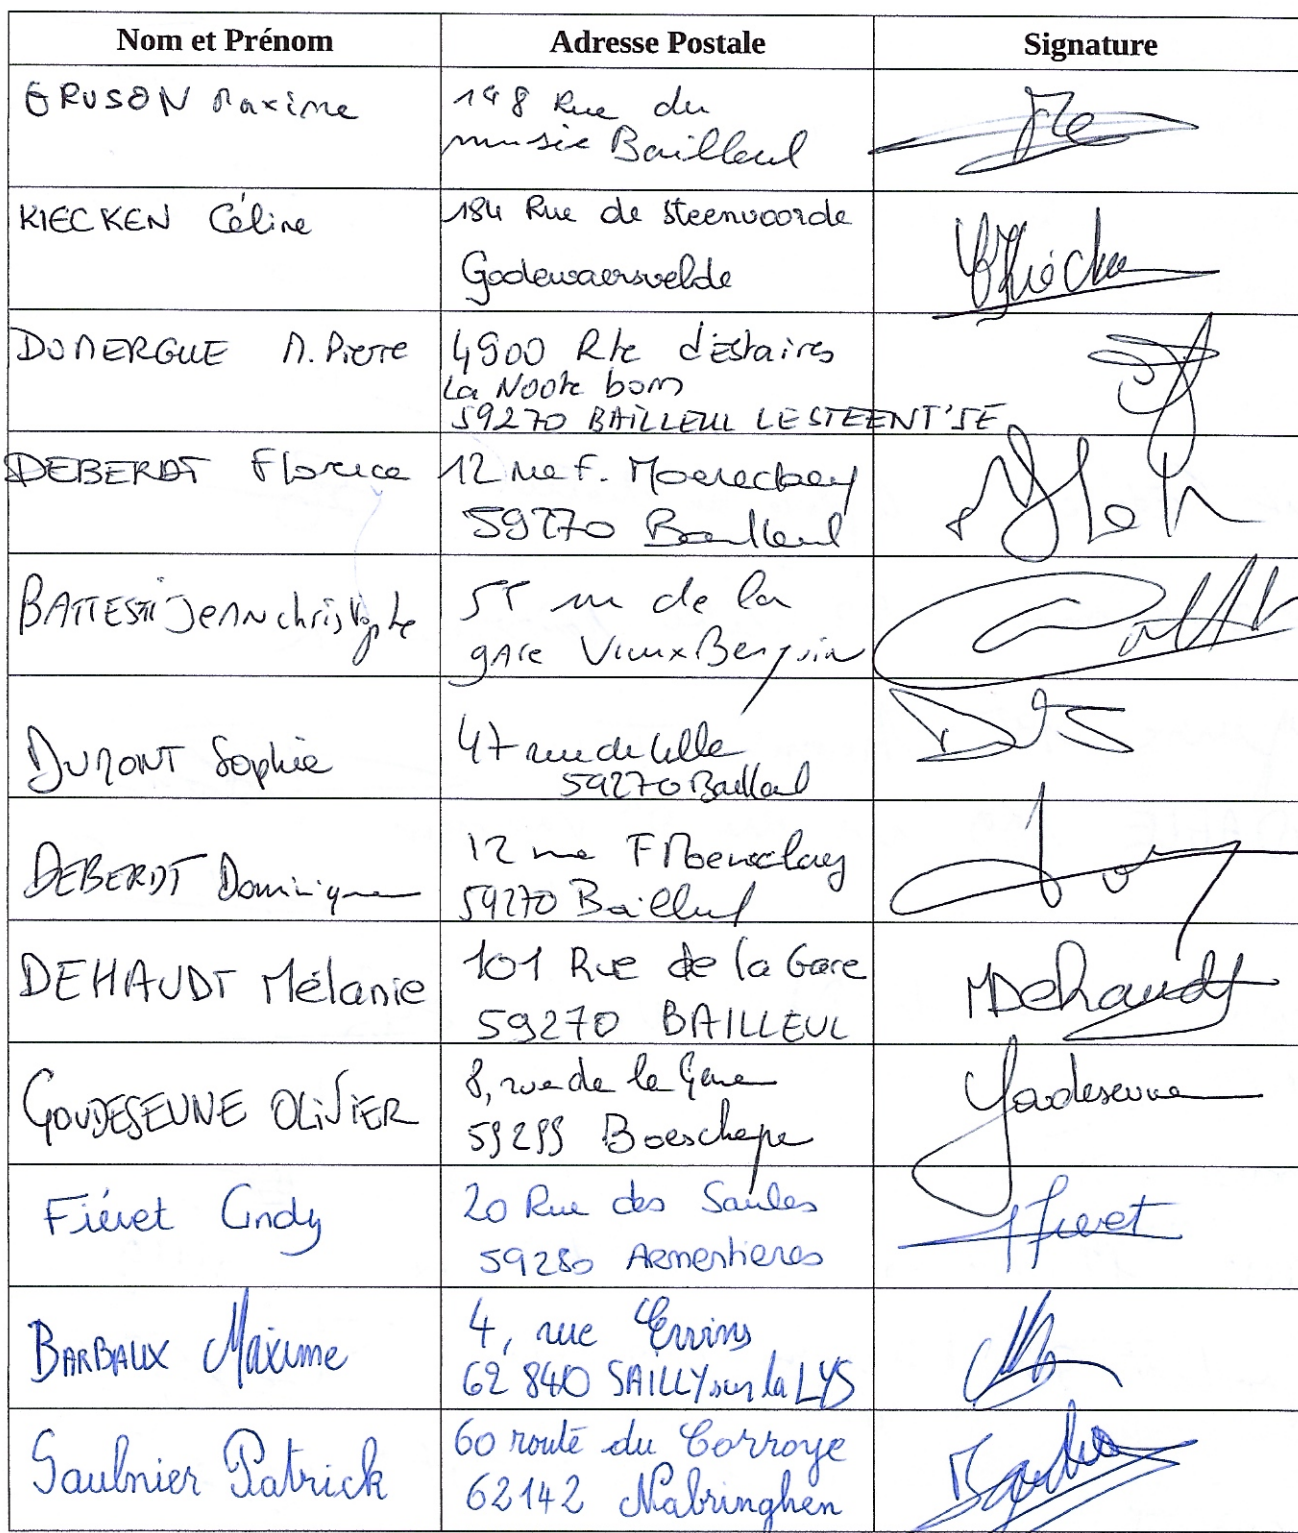 Nom et Prénom Adresse Postale Signature
GRUSON Maxime
148 Rue du
musée Bailleul
KIECKEN Céline
184 Rue de Steenvoorde
Godewaersvelde
DOMERGUE M. Pierre
4900 Rte d'Estaires
La Noote bom
59270 BAILLEUL LE STEENT'JE
DEBERDT Florence
12 rue F.
59270 Bailleul
BATTESTI Jean christophe
55 rue de la
gare Vieux Berquin
DUMONT Sophie
47 rue de Lille
59270 Bailleul
DEBERDT Dominique
12 rue F
59270 Bailleul
DEHAUDT Mélanie
101 Rue de la Gare
59270 BAILLEUL
MDehaudt
GOUDESEUNE OLIVIER
8, rue de la Gare
59299 Boeschepe
Goudeseune
Fiévet Cindy
20 Rue des Saules
59280 Armentieres
Fievet
BARBAUX Maxime
4, rue
62 840 SAILLY sur la LYS
Saulnier Patrick
60 route du Corroye
62142 Nabringhen